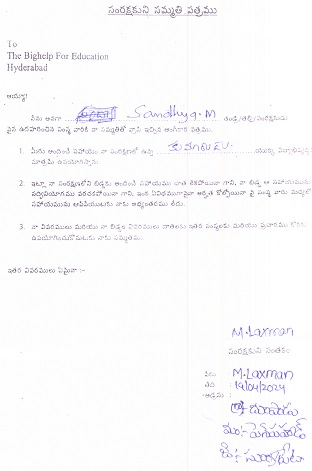 సంరక్షకుని సమ్మతి పత్రము
To
The Bighelp For Education
Hyderabad
అయ్యా!
నేను అనగా Sandhya.M తండ్రి/తల్లి/సంరక్షకుడు
పైన ఉదహరించిన సంస్థ వారికి నా సమ్మతితో వ్రాసి ఇచ్చిన అంగీకార పత్రము.
1. మీరు అందించే సహాయం నా సంరక్షణలో ఉన్న యొక్క విద్యాభివృద్ధికి
మాత్రమే ఉపయోగిస్తాను.
2. ఇట్లా నా సంరక్షణలోని బిడ్డకు అందించే సహాయము నా బిడ్డ ఆ సహాయమును
సద్వినియోగము పరచకపోయినా గాని, ఇంక ఏవిధముగానైనా అర్హత కోల్పోయినా పై సంస్థ వారు మధ్యలో
సహాయమును ఆపివేయుటకు నాకు అభ్యంతరము లేదు.
3. నా వివరములు మరియు నా బిడ్డల వివరములు దాతలకు ఇతర సంస్థలకు మరియు ప్రచారము కొరకు
ఉపయోగించుకొనుటకు నాకు సమ్మతము.
ఇతర వివరములు ఏమైనా :-
M.Laxman
సంరక్షకుని సంతకం
పేరు : M.Laxman
తేది : 19/04/2024
అడ్రసు :